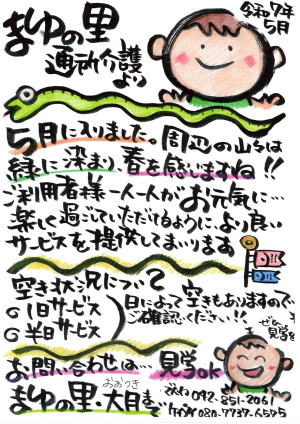 まゆの里
通所介護
より
令和7年
5月
5月に入りました。周辺の山々は
緑に染まり春を感じますね!!
ご利用者様一人一人がお元気に…
楽しく過ごしていただけるように、より良い
サービスを提供してまいります
空き状況について
◎1日サービス
◎半日サービス
日によって空きもありますので
ご確認ください!!
ぜひ
見学を
お問い合わせは…見学OK
おおつき
まゆの里・大月まで
でんわ092-851-2061
ケイタイ080-7737-6595